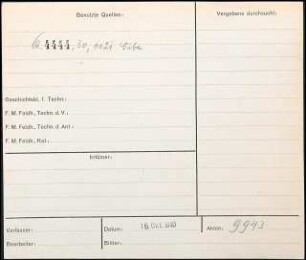 Benutzte Quellen:
Vergebens durchsucht:
4444, 30, 1121
Geschichtsbl. f. Techn.:
F. M. Feldh., Techn. d. V.:
F. M. Feldh., Techn. d. Ant.:
F. M. Feldh., Kal.:
Irrtümer:
Verfasser:
Datum:
Akten: 9943
Bearbeiter:
Bilder: